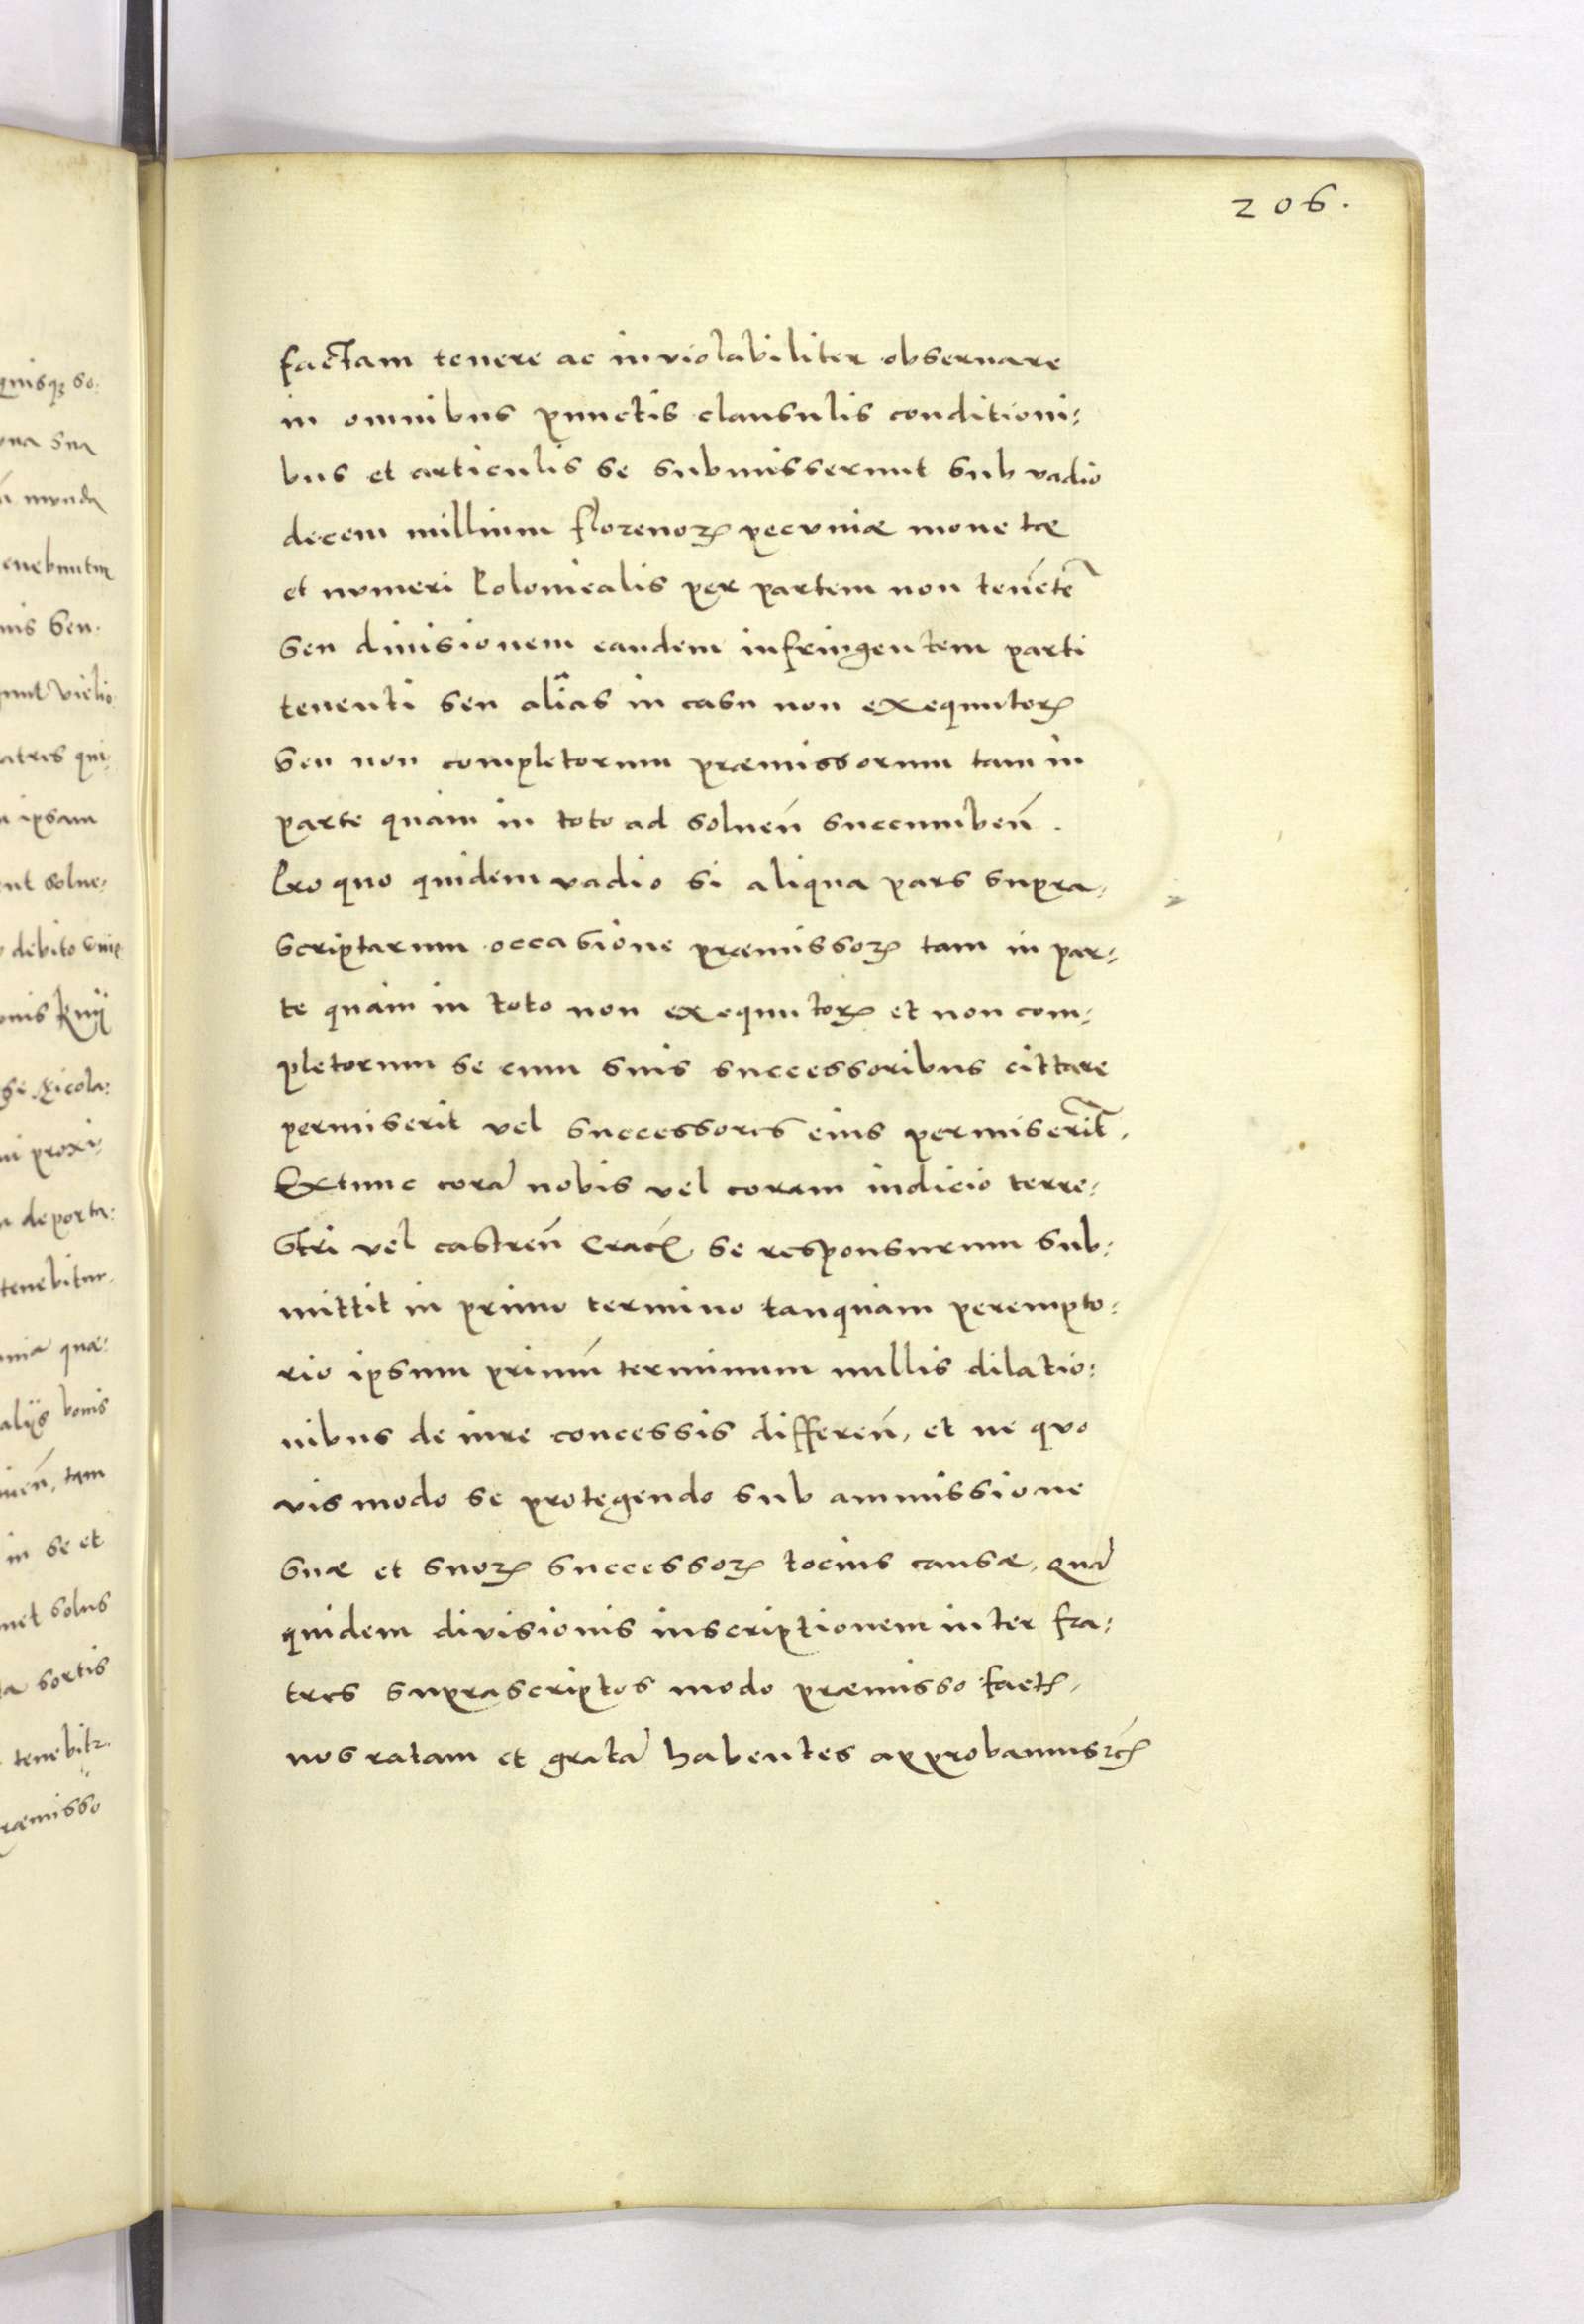 206.
factam tenere ac inviolabiliter observare
in omnibus punctis clausulis conditioni:
bus et articulis se submisserunt sub vadio
decem millium florenoꝝ pecuniæ monetæ
et numeri Polonicalis per partem non tenẽtẽ
seu divisionem eandem infringentem parti
tenenti seu aliãs in casu non exequutoꝝ
seu non completorum præmissorum tam in
parte quam in toto ad soluen̄ succumben̄.
Pro quo quidem vadio si aliqua pars supra:
scriptarum occasione præmissoꝝ tam in par:
te quam in toto non exequutoꝝ et non com:
pletorum se cum suis successoribus cittare
permiserit vel successores eius permiserĩt,
Extunc corã nobis vel coram iudicio terre:
stri vel castren̄ Cracꝭ se responsurum sub:
mittit in primo termino tanquam perempto:
rio ipsum primū terminum nullis dilatio:
nibus de iure concessis differen̄, et ne quo
vis modo se protegendo sub ammissione
suæ et suoꝝ successoꝝ tocius causæ, Quã
quidem divisionis inscriptionem inter fra:
tres suprascriptos modo præmisso factꝭ,
nos ratam et gratã habentes approbamus ꝛcꝭ
quisqꝫ so:
enebuntur
nis seu
atris qui
ipsam
ent solue:
debito
se Nicola:
ni proxi:
deporta:
tenebitur
quæ:
alijs bonis
tam
in se et
solus
sortis
tenebitꝛ.
ræmisso